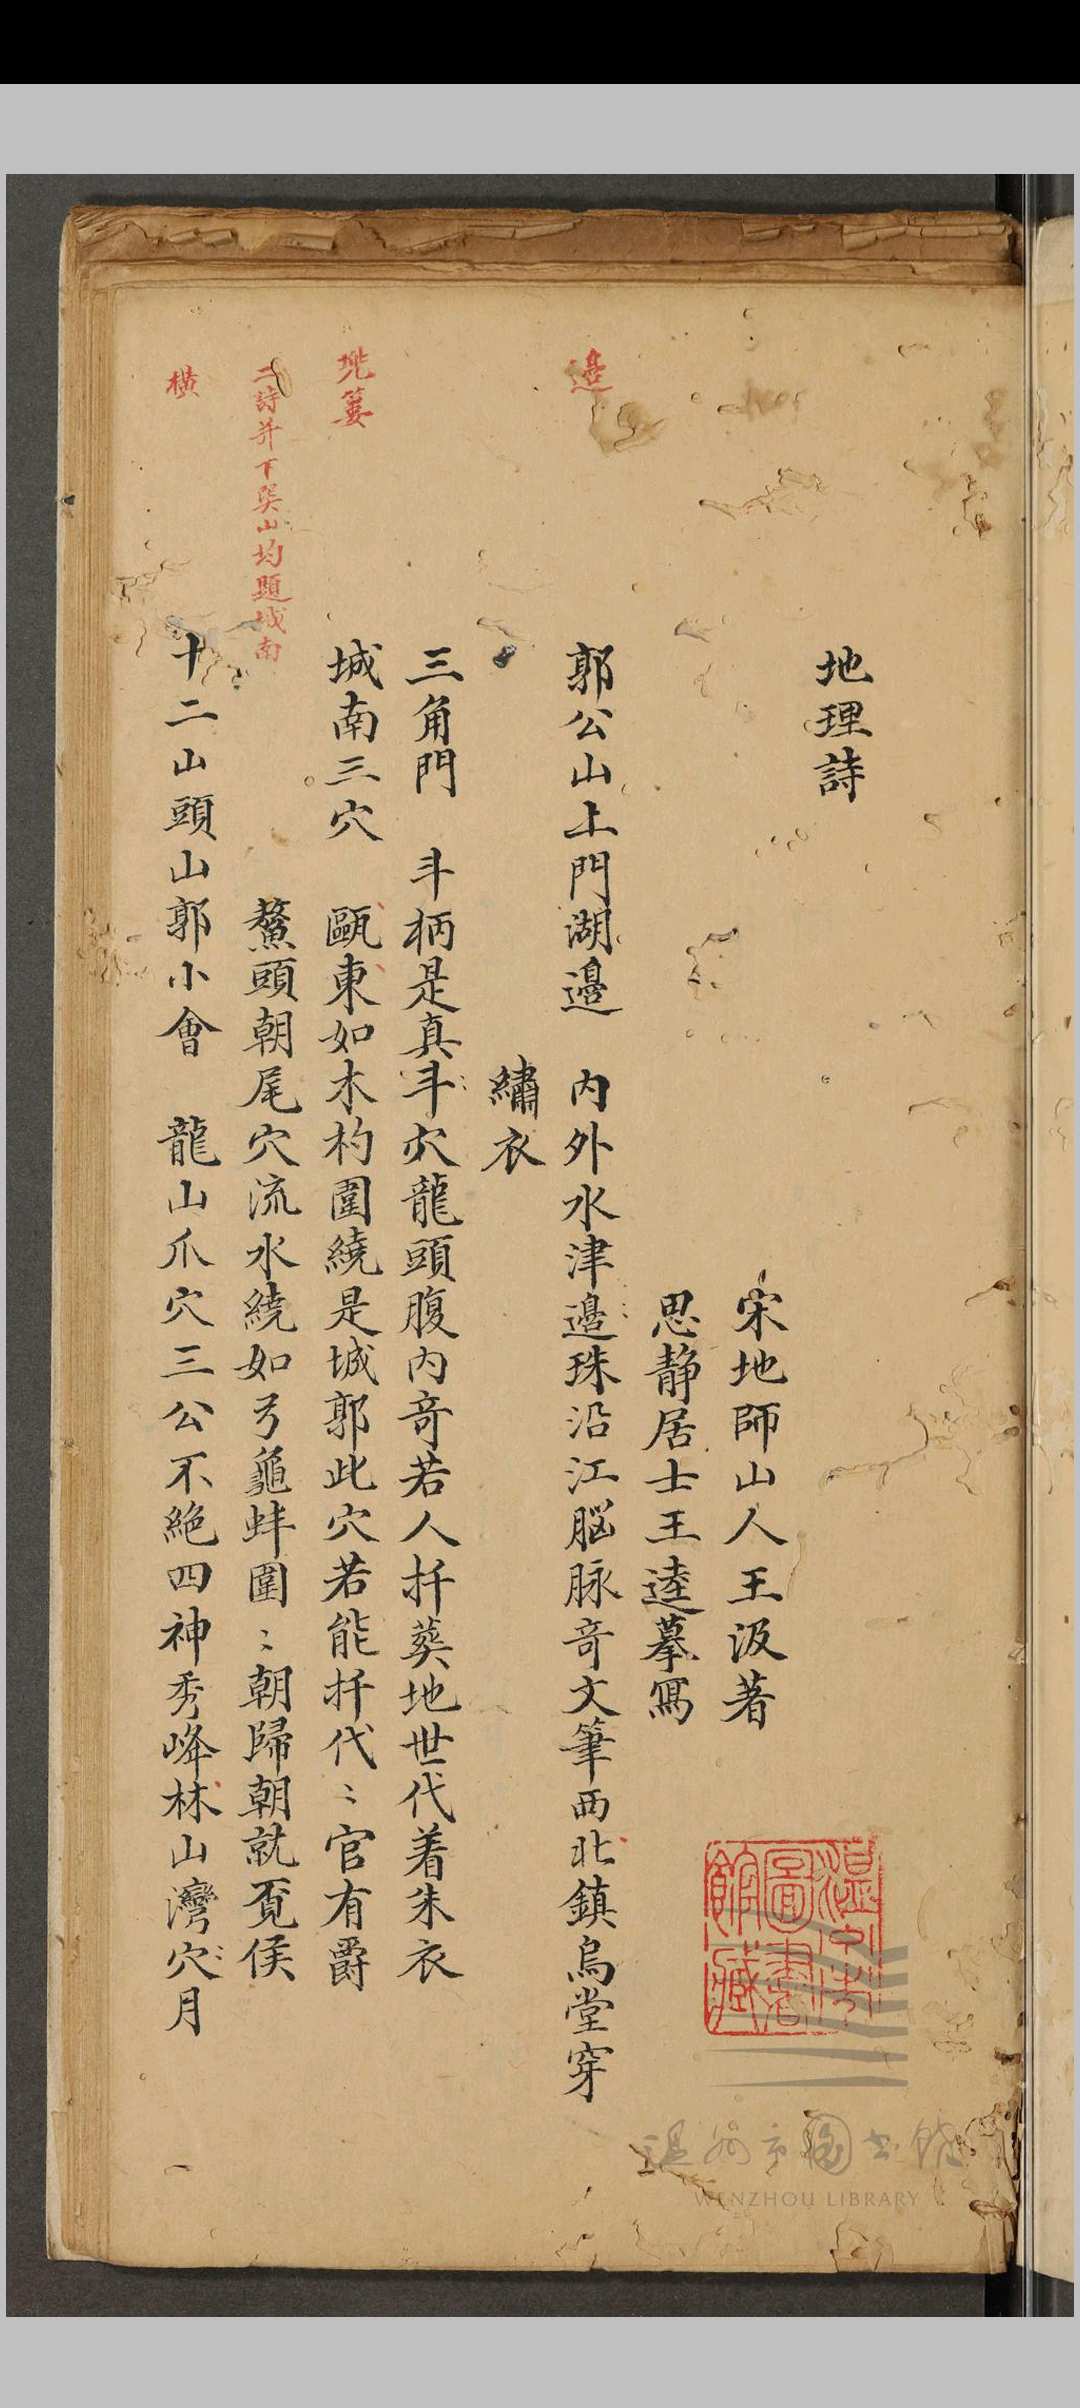 地理詩
宋地師山人王汲著
思静居士王逵摹寫
邉
郭公山上門湖邉　內外水津邉珠沿江脳脉竒文筆西北鎮烏堂穿
繡衣
三角門　斗柄是真斗穴龍頭腹內竒若人扦葬地世代着朱衣
城南三穴　甌東如木杓圍繞是城郭此穴若能扦代〻官有爵
二詩并下巽山均題城南
鰲頭朝尾穴流水繞如弓龜蚌圍〻朝歸朝就覔侯
橫
十二山頭山郭小會　龍山爪穴三公不絶四神秀峰林山灣穴月
溫州市圖書館藏
温州市图书馆
WENZHOU LIBRARY